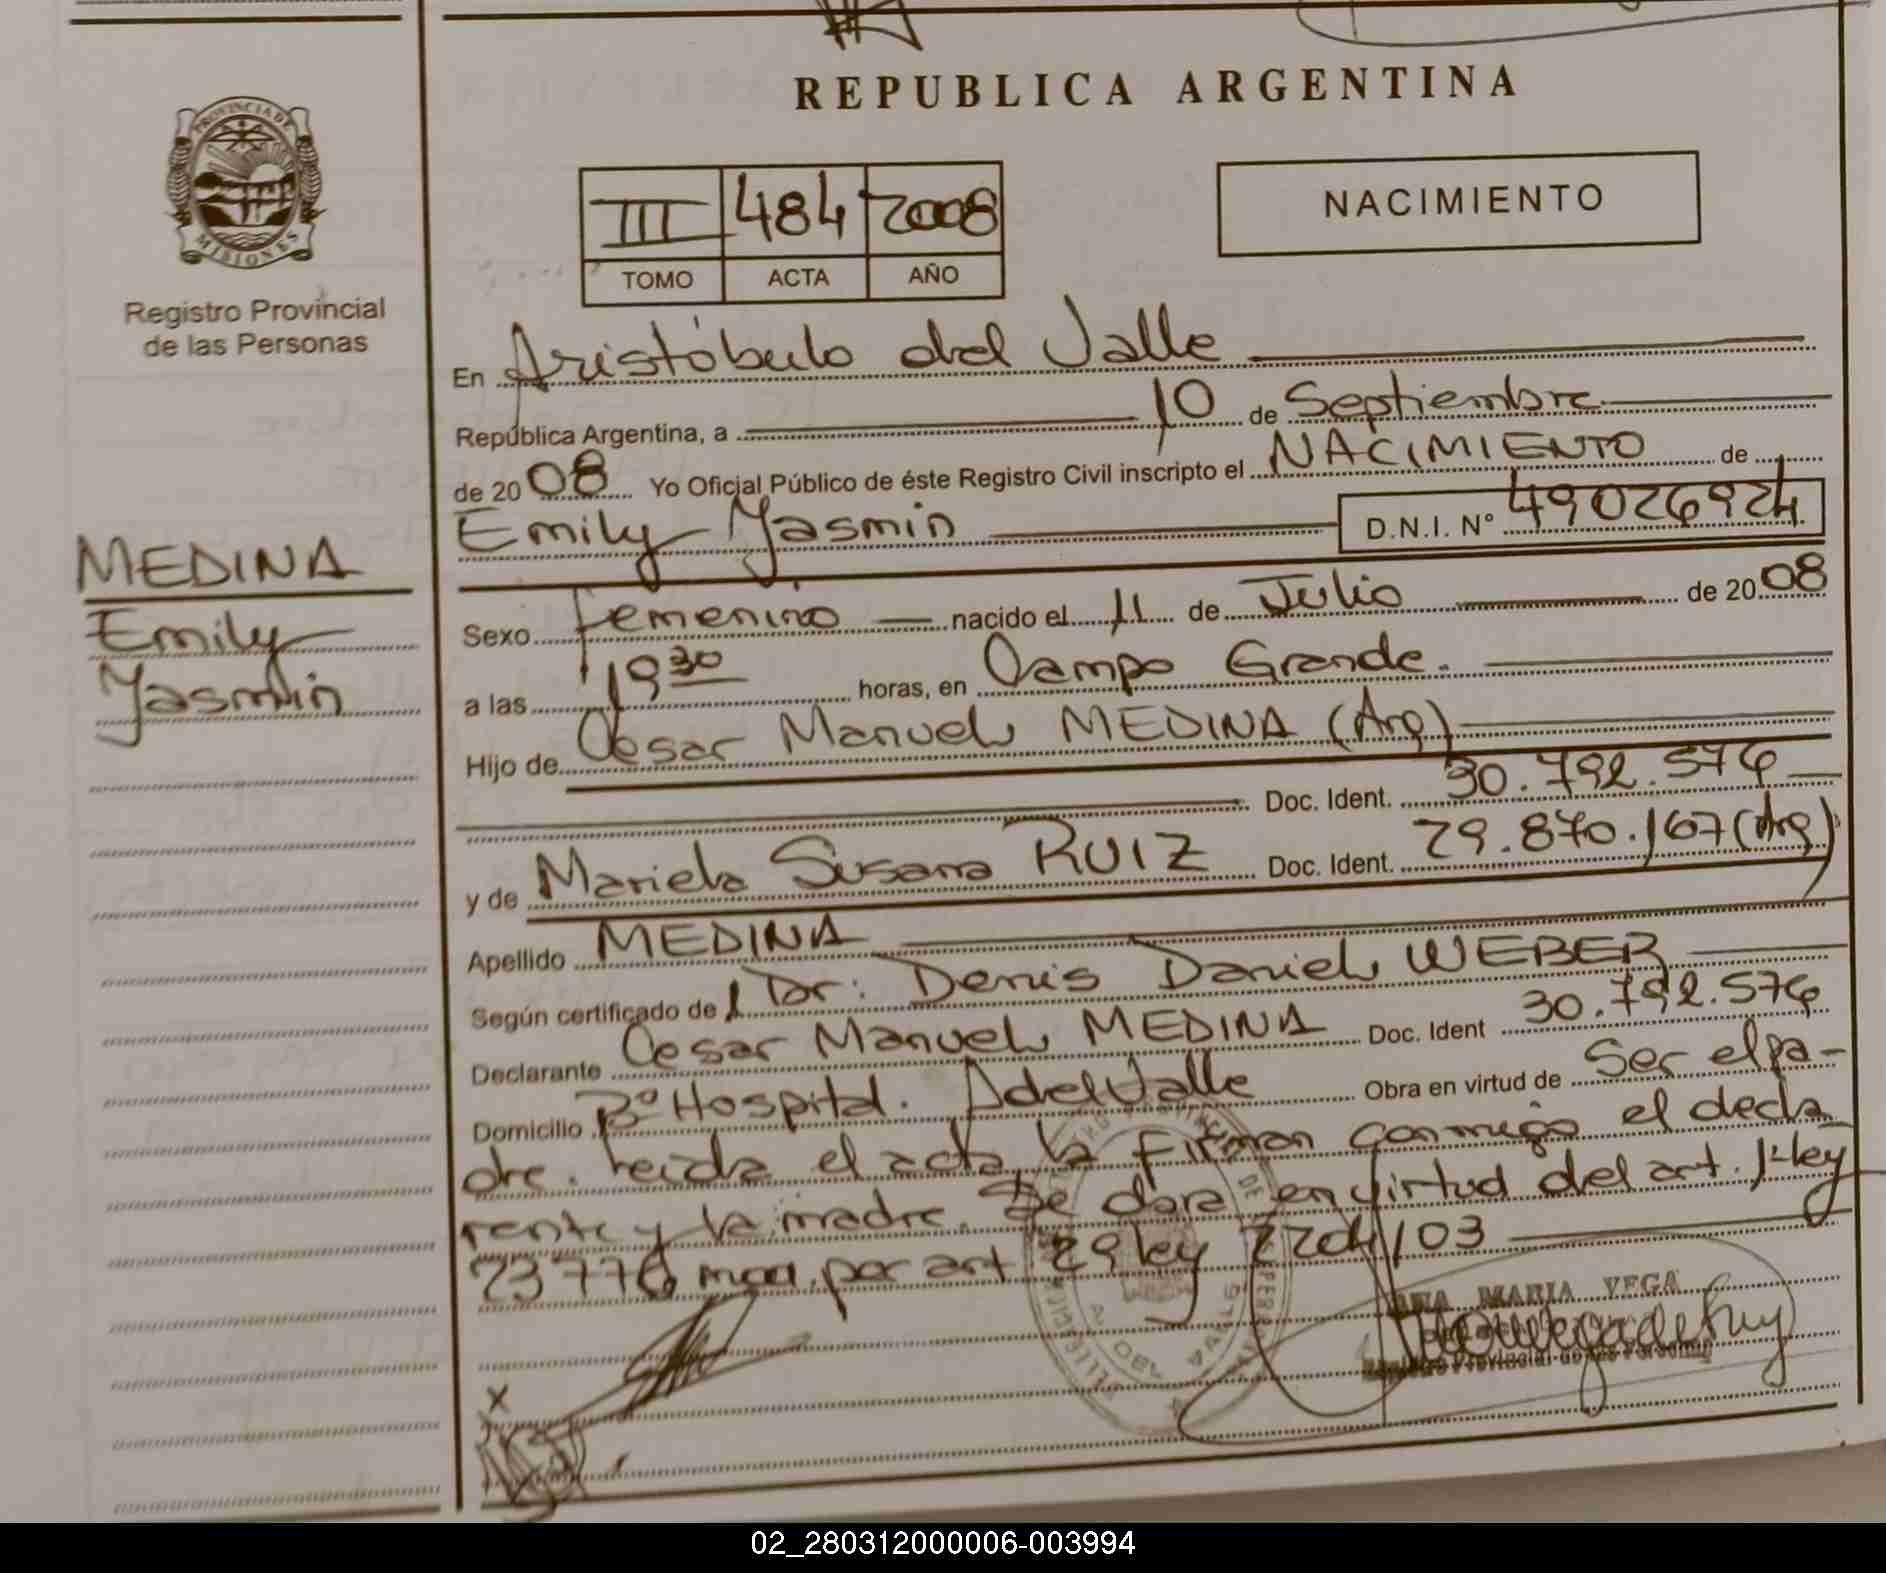 REPUBLICA ARGENTINA
PROVINCIA DE
MISIONES
Registro Provincial
de las Personas
III 484 2008
TOMO ACTA AÑO
NACIMIENTO
En Aristóbulo del Valle
República Argentina, a 10 de Septiembre
de 2008 Yo Oficial Público de éste Registro Civil inscripto el NACIMIENTO de
Emily Yasmin D.N.I. N° 49026924
MEDINA
Emily
Yasmin
Sexo Femenino nacido el 11 de Julio de 2008
a las 19 30 horas, en Campo Grande.
Hijo de Cesar Manuel MEDINA (Arg)
Doc. Ident. 30.792.576
y de Mariela Susana RUIZ Doc. Ident. 29.870.167 (Arg)
Apellido MEDINA
Según certificado de l Dr. Denis Daniel WEBER
Declarante Cesar Manuel MEDINA Doc. Ident 30.792.576
Domicilio B° Hospital. A del Valle Obra en virtud de Ser el pa-
dre. Leida el acta la Firman conmigo el decla
rente y la madre. Se labra en virtud del art. 1° ley
23776 mod. por art 29 ley
ANA MARIA VEGA
Registro Provincial de las Personas
02_280312000006-003994